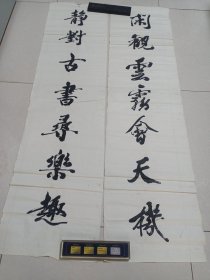 閑觀雲霧會天機
靜對古書尋樂趣